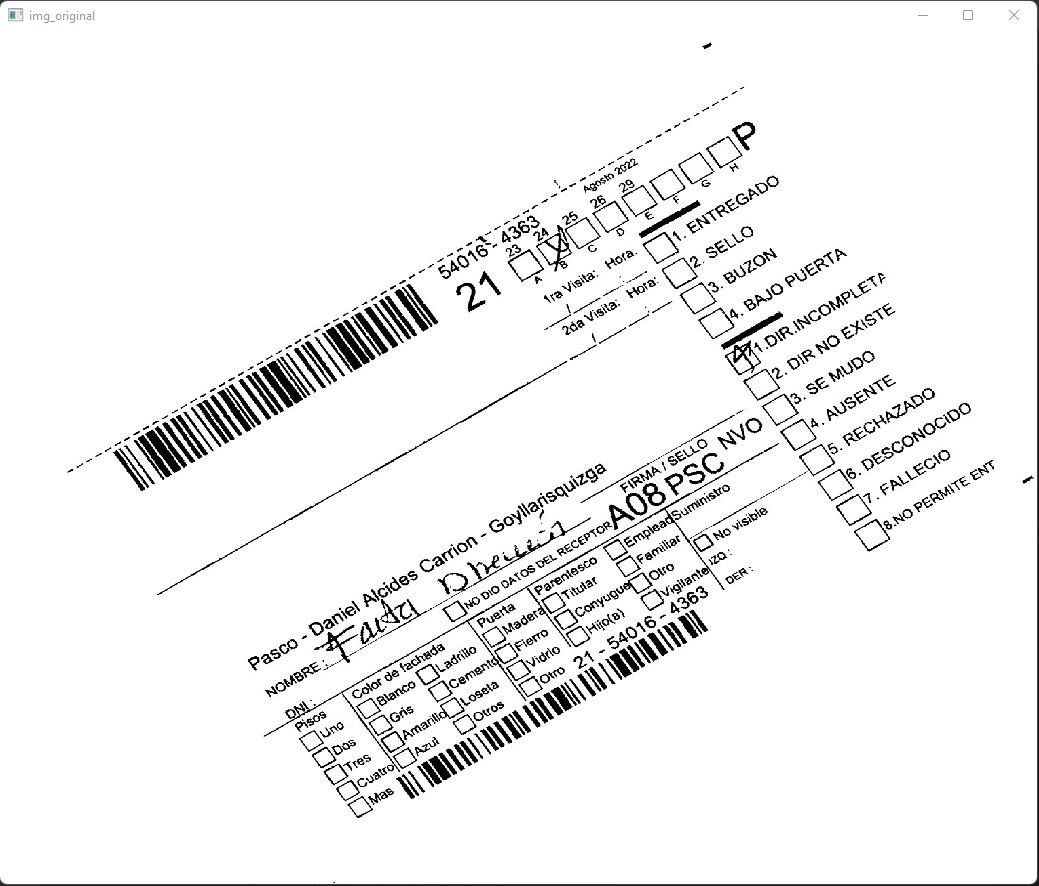 img_original
P
Agosto 2022
54016 - 4363
21
23 24 25 26 29
A B C D E F G H
1ra Visita: Hora:
2da Visita: Hora:
1. ENTREGADO
2. SELLO
3. BUZON
4. BAJO PUERTA
1.DIR.INCOMPLETA
2. DIR NO EXISTE
3. SE MUDO
4. AUSENTE
5. RECHAZADO
6. DESCONOCIDO
7. FALLECIO
8.NO PERMITE ENT
Pasco - Daniel Alcides Carrion - Goyllarisquizga
NOMBRE: Falta
DNI:
FIRMA / SELLO
A08 PSC NVO
NO DIO DATOS DEL RECEPTOR
Pisos
Uno
Dos
Tres
Cuatro
Mas
Color de fachada
Blanco
Gris
Amarillo
Azul
Ladrillo
Cemento
Loseta
Otros
Puerta
Madera
Fierro
Vidrio
Otro
Parentesco
Titular
Conyugue
Hijo(a)
Empleado
Familiar
Otro
Vigilante
Suministro
No visible
IZQ.:
DER.:
21 - 54016 - 4363